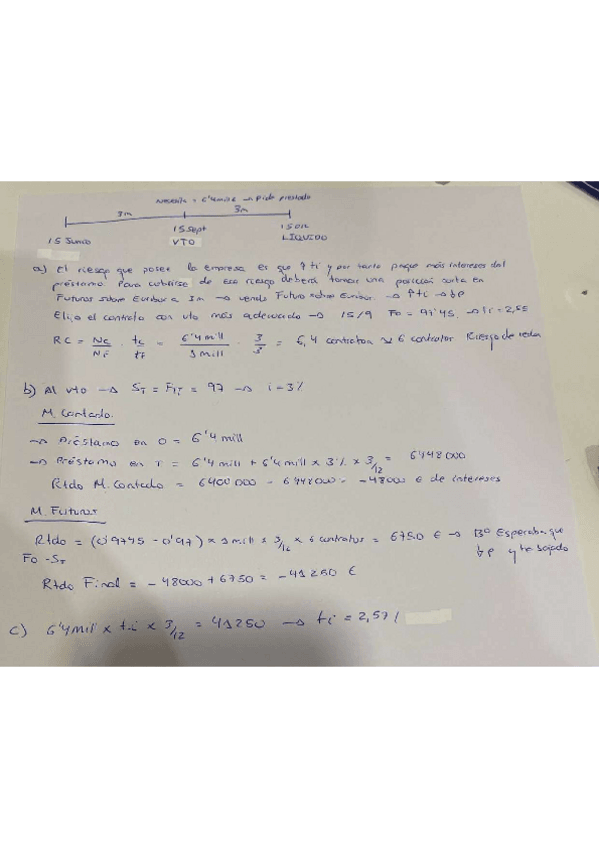 Necesita = 6'4 mill € → Pide prestado
3m 3m
15 Junio 15 Sept 15 Dic
VTO LÍQUIDO
a) El riesgo que posee la empresa es que ↑ ti y por tanto pague más intereses del
préstamo. Para cubrirse de ese riesgo deberá tomar una posición corta en
Futuros sobre Euribor a 3m → vende Futuro sobre Euribor. → ↑ti → ↓p
Elijo el contrato con vto más adecuado → 15/9 Fo = 97'45. → ti = 2,55
RC = Nc/NF · tc/tF = 6'4 mill/1 mill · 3/3 = 6,4 contratos ≈ 6 contratos Riesgo de redon
b) Al vto → ST = FT = 97 → i = 3%
M. Contado.
→ Préstamo en 0 = 6'4 mill
→ Préstamo en T = 6'4 mill + 6'4 mill x 3% x 3/12 = 6448000
Rtdo M. Contado = 6400000 - 6448000 = -48000 € de intereses
M. Futuros
Rtdo = (0'9745 - 0'97) x 1 mill x 3/12 x 6 contratos = 6750 € → Bº Esperaba que
Fo - ST ↓p y ha bajado
Rtdo Final = - 48000 + 6750 = - 41250 €
c) 6'4 mill x ti x 3/12 = 41250 → ti = 2,57%